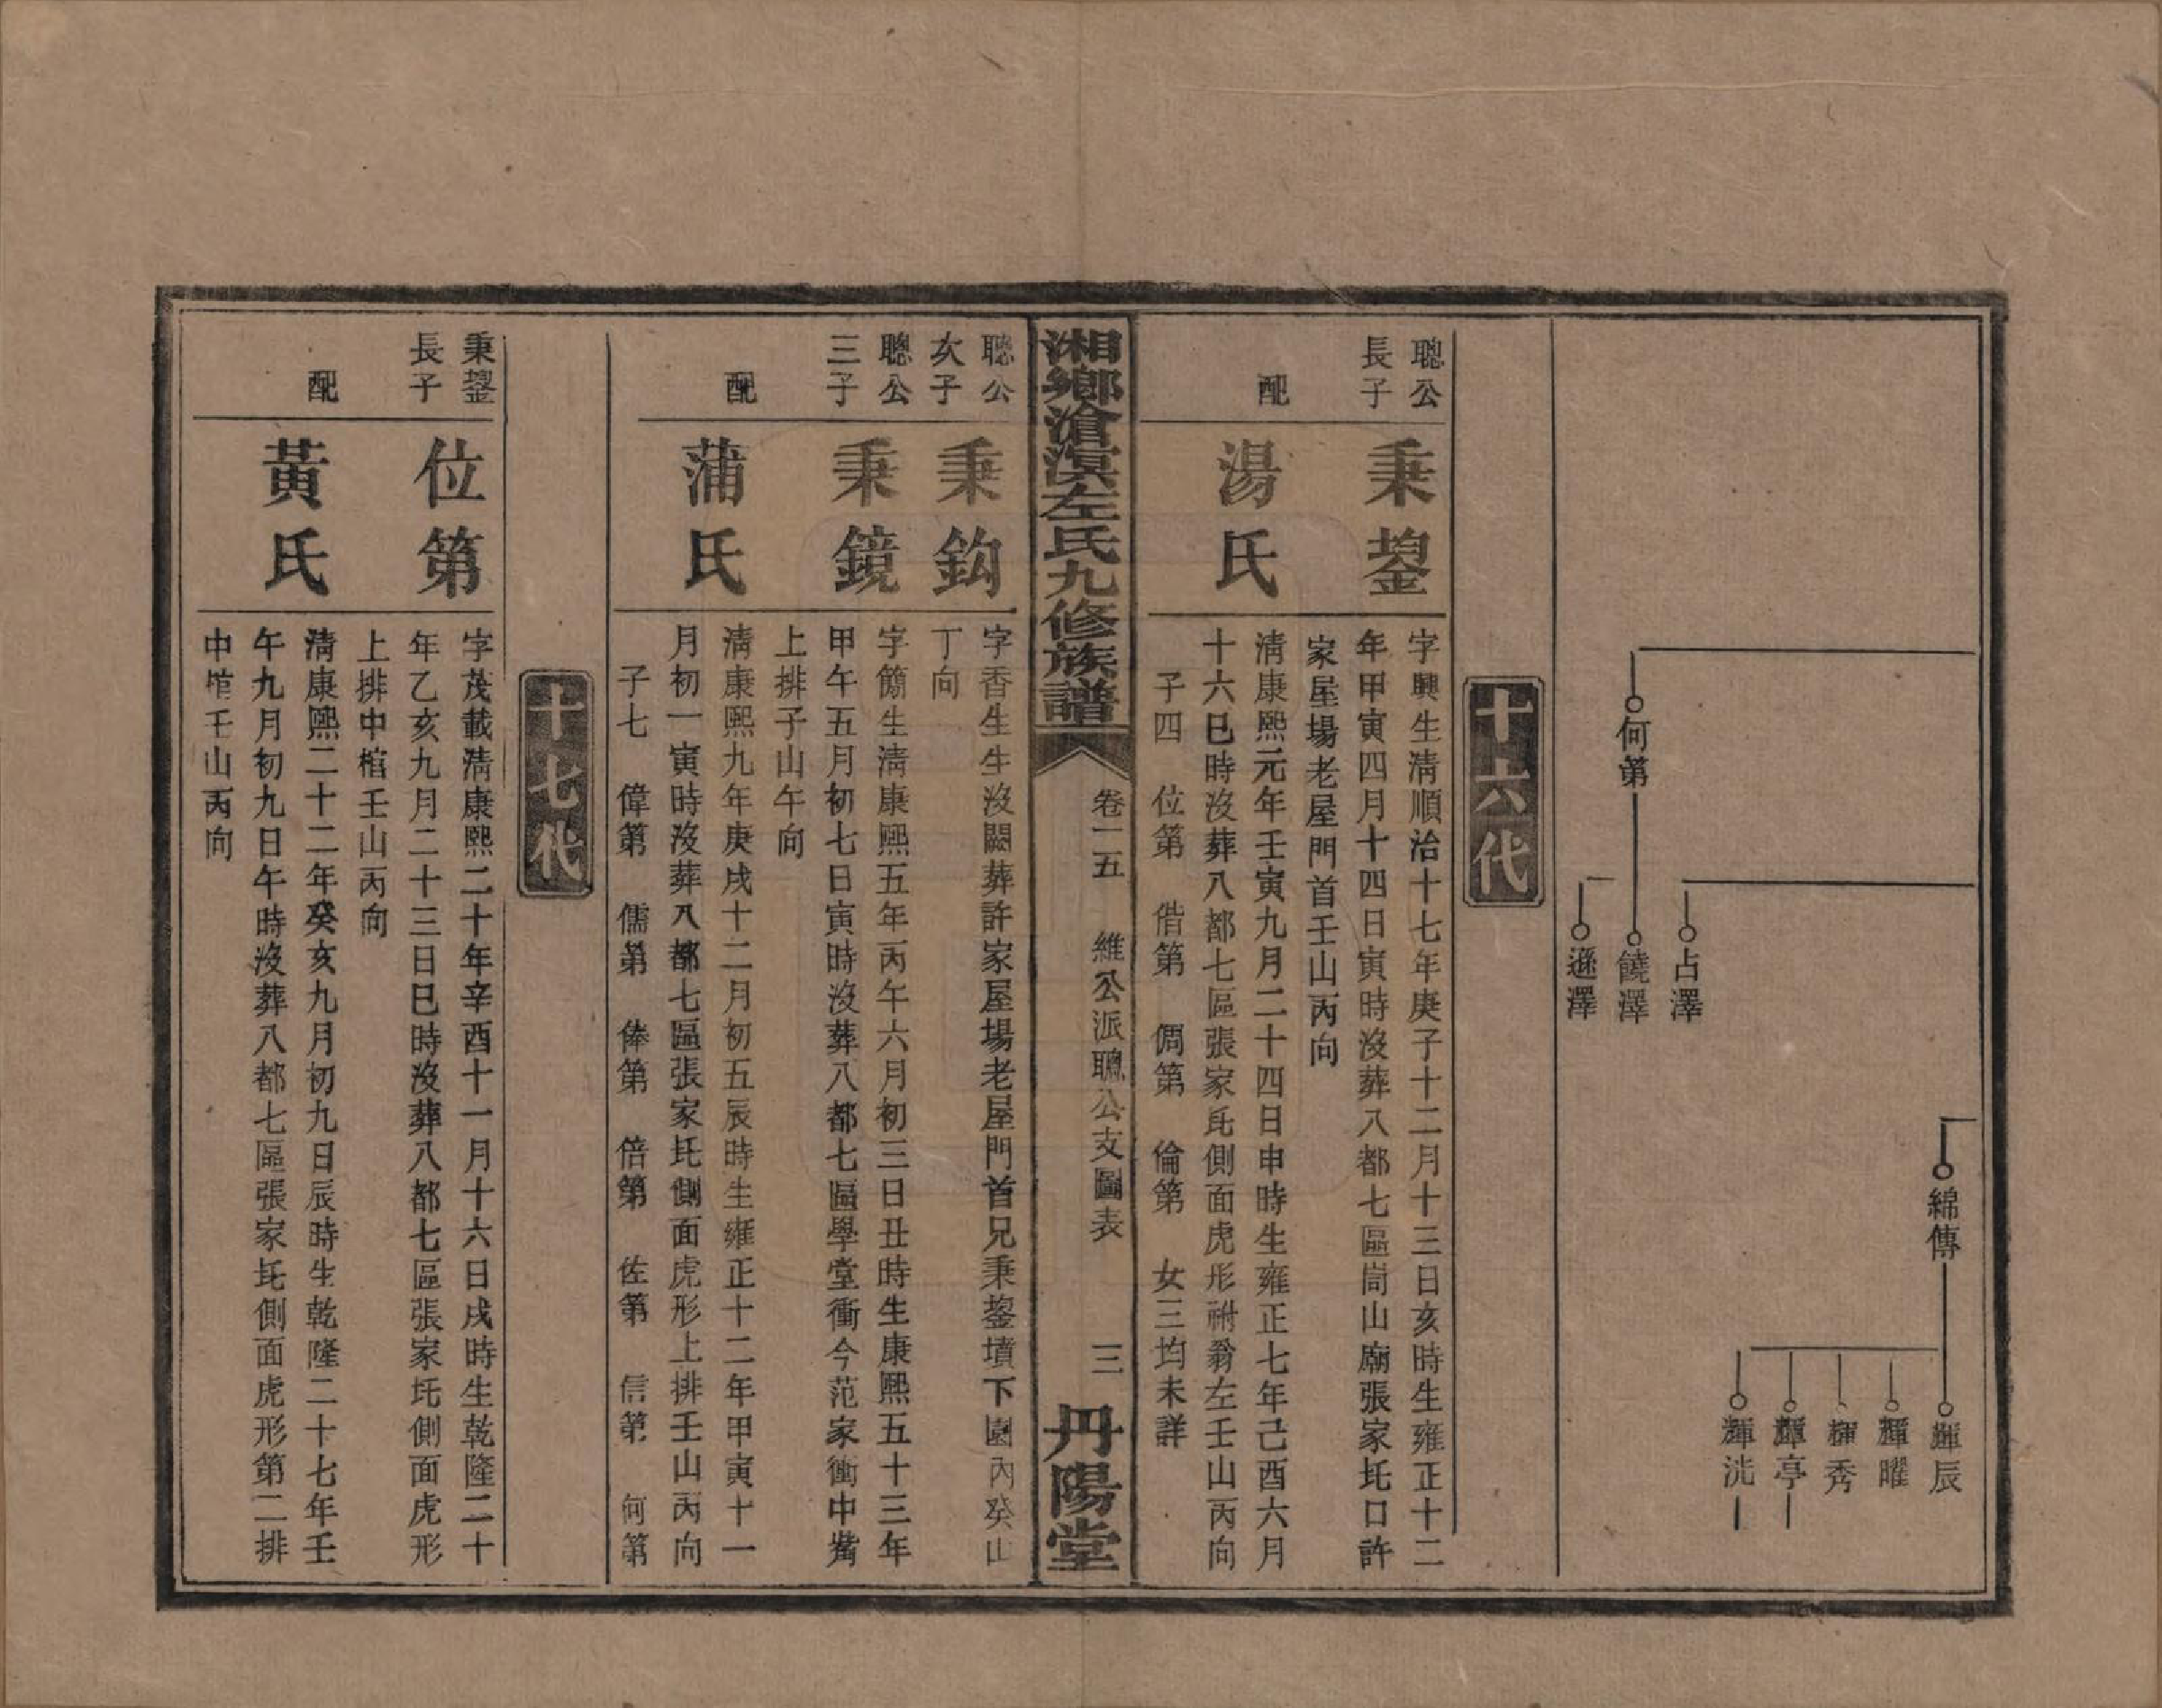 綿傳
輝辰
輝曜
輝秀
輝亭
輝洸
占澤
何第
饒澤
遜澤
十六代
聰公
長子
秉鋆
字興生清順治十七年庚子十二月十三日亥時生雍正十二
年甲寅四月十四日寅時沒葬八都七區峝山廟張家圫口許
家屋場老屋門首壬山丙向
配
湯氏
清康熙元年壬寅九月二十四日申時生雍正七年己酉六月
十六巳時沒葬八都七區張家圫側面虎形祔翁左壬山丙向
子四 位第 偕第 倜第 倫第 女三均未詳
湘鄉滄溟左氏九修族譜
卷一五 維公派聰公支圖表 三
丹陽堂
聰公
次子
秉鈞
字香生生沒闕葬許家屋場老屋門首兄秉鋆墳下園內癸山
丁向
聰公
三子
秉鏡
字簡生清康熙五年丙午六月初三日丑時生康熙五十三年
甲午五月初七日寅時沒葬八都七區學堂衝今范家衝中嘴
上排子山午向
配
蒲氏
清康熙九年庚戌十二月初五辰時生雍正十二年甲寅十一
月初一寅時沒葬八都七區張家圫側面虎形上排壬山丙向
子七 偉第 儒第 俸第 倍第 佐第 信第 何第
十七代
秉鋆
長子
位第
字茂載清康熙二十年辛酉十一月十六日戌時生乾隆二十
年乙亥九月二十三日巳時沒葬八都七區張家圫側面虎形
上排中棺壬山丙向
配
黃氏
清康熙二十二年癸亥九月初九日辰時生乾隆二十七年壬
午九月初九日午時沒葬八都七區張家圫側面虎形第二排
中棺壬山丙向